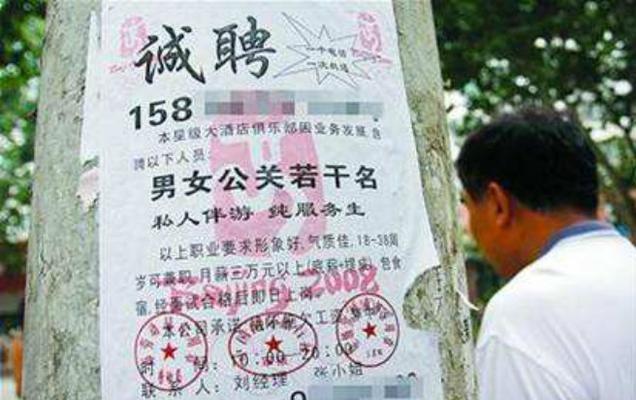 诚聘
一个电话
一次机遇
158
本星级大酒店俱乐部因业务发展,急
聘以下人员
男女公关若干名
私人伴游 纯服务生
以上职业要求形象好,气质佳,18-38周
岁可兼职,月薪三万元以上(底薪+提成)包食
宿,经面试合格后即日上岗。
本公司承诺
工
时 间:10:00-20:00
联 系 人:刘经理 张小姐
Beijing 2008